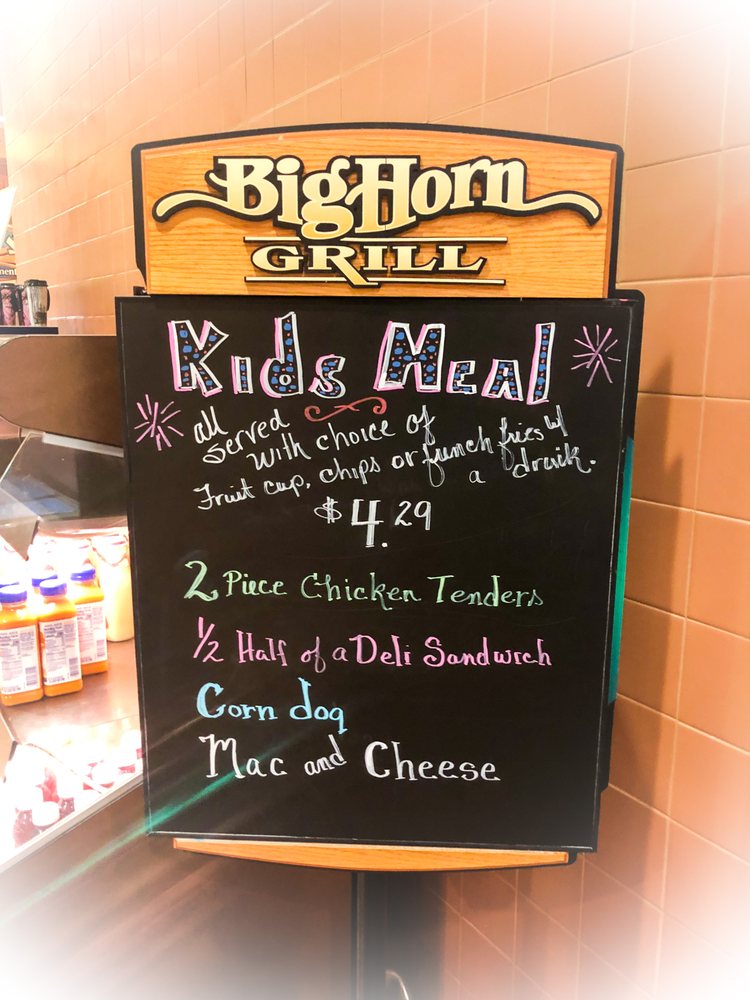 BigHorn
GRILL
Kids Meal
all served
with choice of
Fruit cup, chips or french fries w/
a drink.
$4.29
2 Piece Chicken Tenders
1/2 Half of a Deli Sandwich
Corn dog
Mac and Cheese